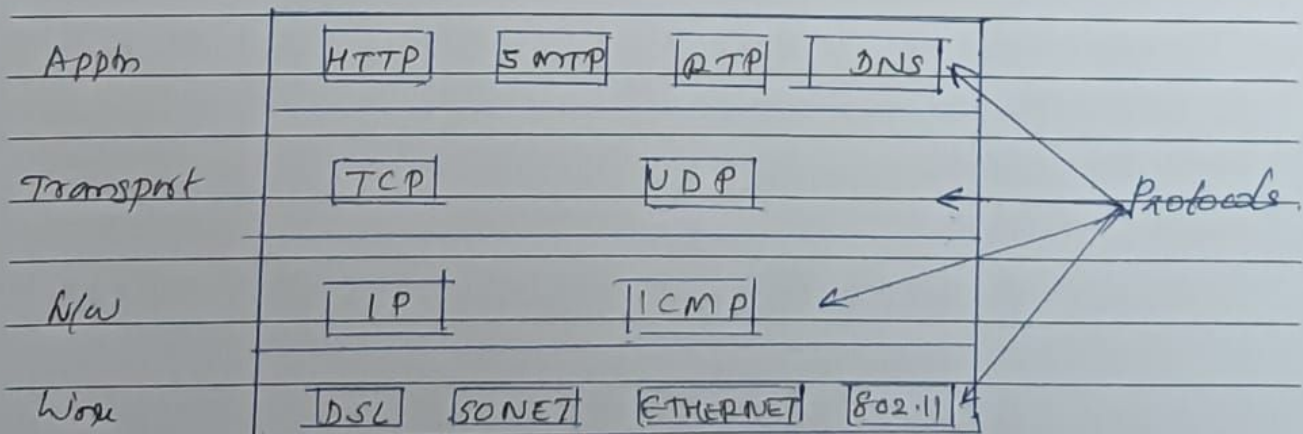 Appln HTTP SMTP RTP DNS
Transport TCP UDP Protocols.
N/w IP ICMP
DSL SONET ETHERNET 802.11